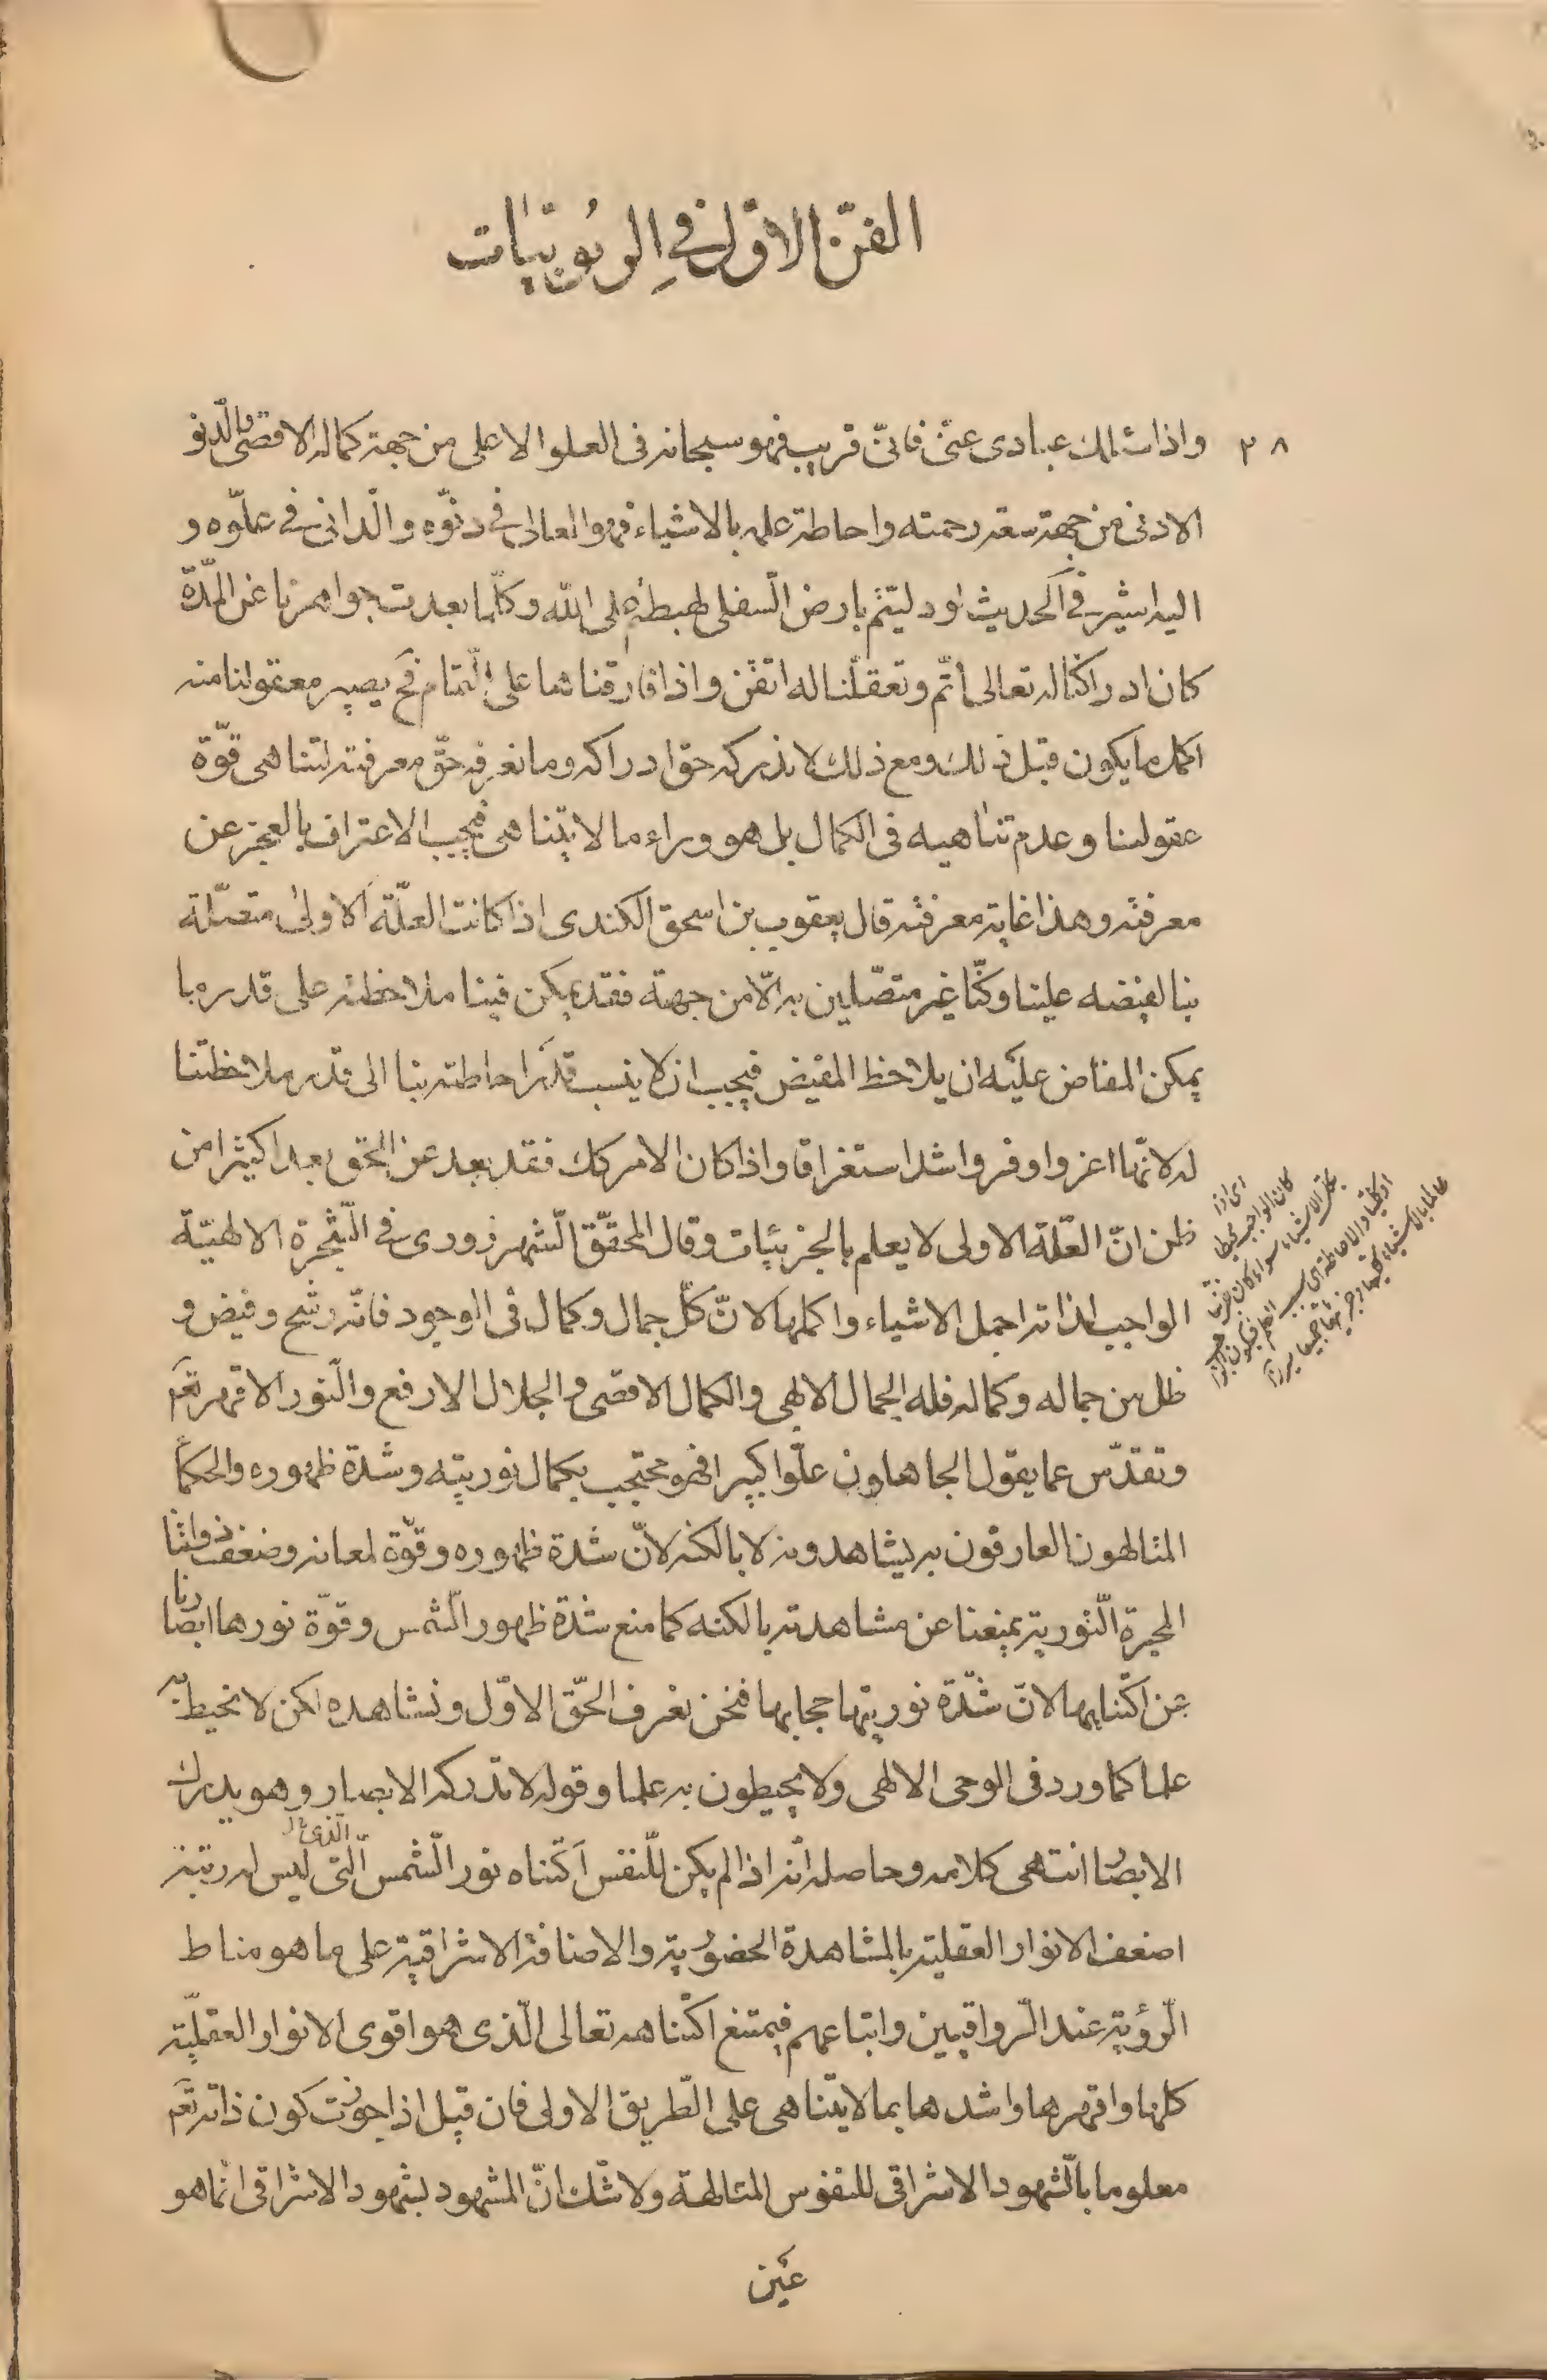 الفنّ الاوّل فى الربوبيّات
٢٨
واذا سئلك عبادى عنّى فانّى قريب فهو سبحانه فى العلو الاعلى من جهة كماله الاقصى والدّنو
الادنى من جهة سعة رحمته واحاطة علمه بالاشياء فهو العالى فى دنوّه والدّانى فى علوّه و
اليه اشير فى الحديث لو دليتم بارض السّفلى لهبط على اللّه وكلّما بعدت جواهرنا عن المادّة
كان ادراكنا له تعالى اتمّ وتعقّلنا له اتقن واذا فارقناها على التّمام فح يصير معقولنا منه
اكمل ما يكون قبل ذلك ومع ذلك لا ندركه حق ادراكه وما نعرفه حقّ معرفته لتناهى قوّة
عقولنا وعدم تناهيه فى الكمال بل هو وراء ما لا يتناهى فيجب الاعتراف بالعجز عن
معرفته وهذا غاية معرفته قال يعقوب بن اسحق الكندى اذا كانت العلّة الاولى متصّلة
بنا لفيضه علينا وكنّا غير متصّلين به الّا من جهة فقد يمكن فينا ملاحظته على قدر ما
يمكن المفاض عليه ان يلاحظ المفيض فيجب ان لا ينسب قدر احاطته بنا الى قدر ملاحظتنا
له لانّها اعز واوفر واشد استغراقا واذا كان الامر كك فقد بعد عن الحق بعدا كثيرا من
ظن انّ العلّة الاولى لا يعلم بالجزئيات وقال المحقّق الشّهرزورى فى الشّجرة الالهيّة
الواجب لذاته اجمل الاشياء واكملها لانّ كلّ جمال وكمال فى الوجود فانّه رشح وفيض و
ظل من جماله وكماله فله الجمال الابهى والكمال الاقصى والجلال الارفع والنّور الاقهر تعَم
وتقدّس عما يقول الجاهلون علوّا كبيرا فهو محتجب بكمال نوريّته وشدّة ظهوره والحكمآ
المتالهون العارفون به يشاهدونه لا بالكنه لانّ شدة ظهوره وقوّة لمعانه وضعف ذواتنا
المجردة النّورية يمنعنا عن مشاهدته بالكنه كما منع شدّة ظهور الشّمس وقوّة نورها ابصارنا
عن اكتناهها لانّ شدّة نوريتها حجابها فنحن نعرف الحقّ الاوّل ونشاهده لكن لا نحيط به
علما كما ورد فى الوحى الالهى ولا يحيطون به علما وقوله لا تدركه الابصار وهو يدرك
الابصار انتهى كلامه وحاصله انّه اذا لم يكن للنّفس اكتناه نور الشّمس الّتى ليس له رتبة
الّذى
اضعف الانوار العقلية بالمشاهدة الحضورية والاضافة الاشراقية على ما هو مناط
الرّؤية عند الرّواقيين واتباعهم فيمتنع اكتناهه تعالى الّذى هو اقوى الانوار العقليّة
كلها واقهرها واشدها بما لا يتناهى على الطّريق الاولى فان قيل اذا جوّزت كون ذاته تعَم
معلوما بالشّهود الاشراقى للنفوس المتالهة ولا شكّ انّ المشهود بشهود الاشراقى انّما هو
عين
اى اذا
كان الواجب محيطا
بكل الاشياء سواء كان جزئيا
او كليا والاحاطة اى بحسب العلم فيكون الواجب
عالما بالاشياء كليها وجزئيها جميعا